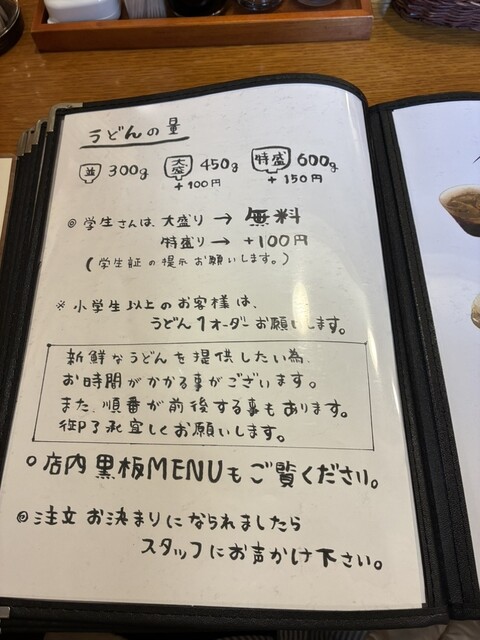 うどんの量
並 300g 大盛 450g 特盛 600g
+100円 +150円
◎ 学生さんは、大盛り → 無料
特盛り → +100円
(学生証の提示お願いします。)
※ 小学生以上のお客様は、
うどん1オーダーお願いします。
新鮮なうどんを提供したい為、
お時間がかかる事がございます。
また、順番が前後する事もあります。
御了承宜しくお願いします。
○ 店内 黒板MENUもご覧ください。
◎ 注文 お決まりになられましたら
スタッフにお声かけ下さい。